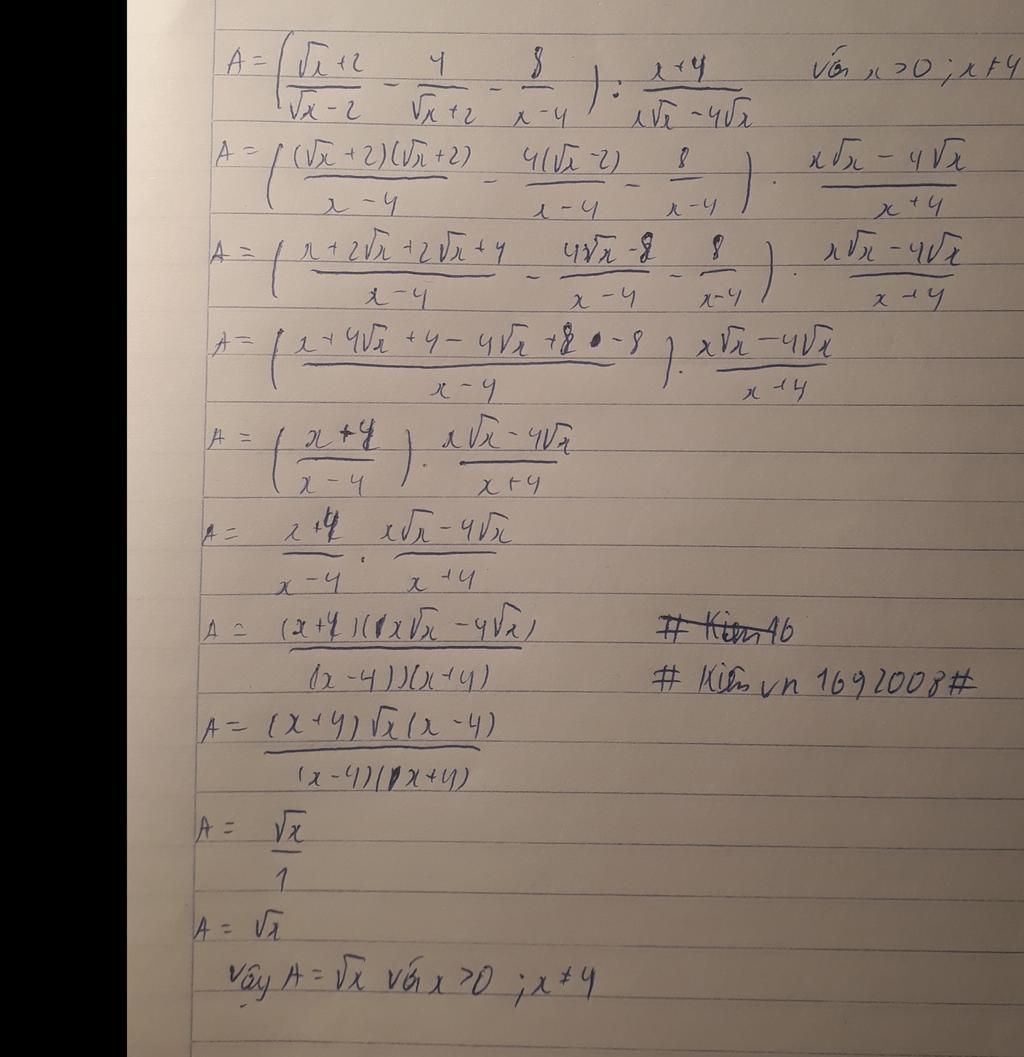 A = ( (√x+2)/(√x-2) - 4/(√x+2) - 8/(x-4) ) : (x+4)/(x√x-4√x) với x>0 ; x≠4
A = ( (√x+2)(√x+2)/(x-4) - 4(√x-2)/(x-4) - 8/(x-4) ) . (x√x-4√x)/(x+4)
A = ( (x+2√x+2√x+4)/(x-4) - (4√x-8)/(x-4) - 8/(x-4) ) . (x√x-4√x)/(x+4)
A = ( (x+4√x+4-4√x+8-8)/(x-4) ) . (x√x-4√x)/(x+4)
A = ( (x+4)/(x-4) ) . (x√x-4√x)/(x+4)
A = (x+4)/(x-4) . (x√x-4√x)/(x+4)
A = (x+4)(x√x-4√x)/(x-4)(x+4)
# Kien 16
# Kiên vn 1692008#
A = (x+4)√x(x-4)/(x-4)(x+4)
A = √x/1
A = √x
Vậy A = √x với x>0 ; x≠4